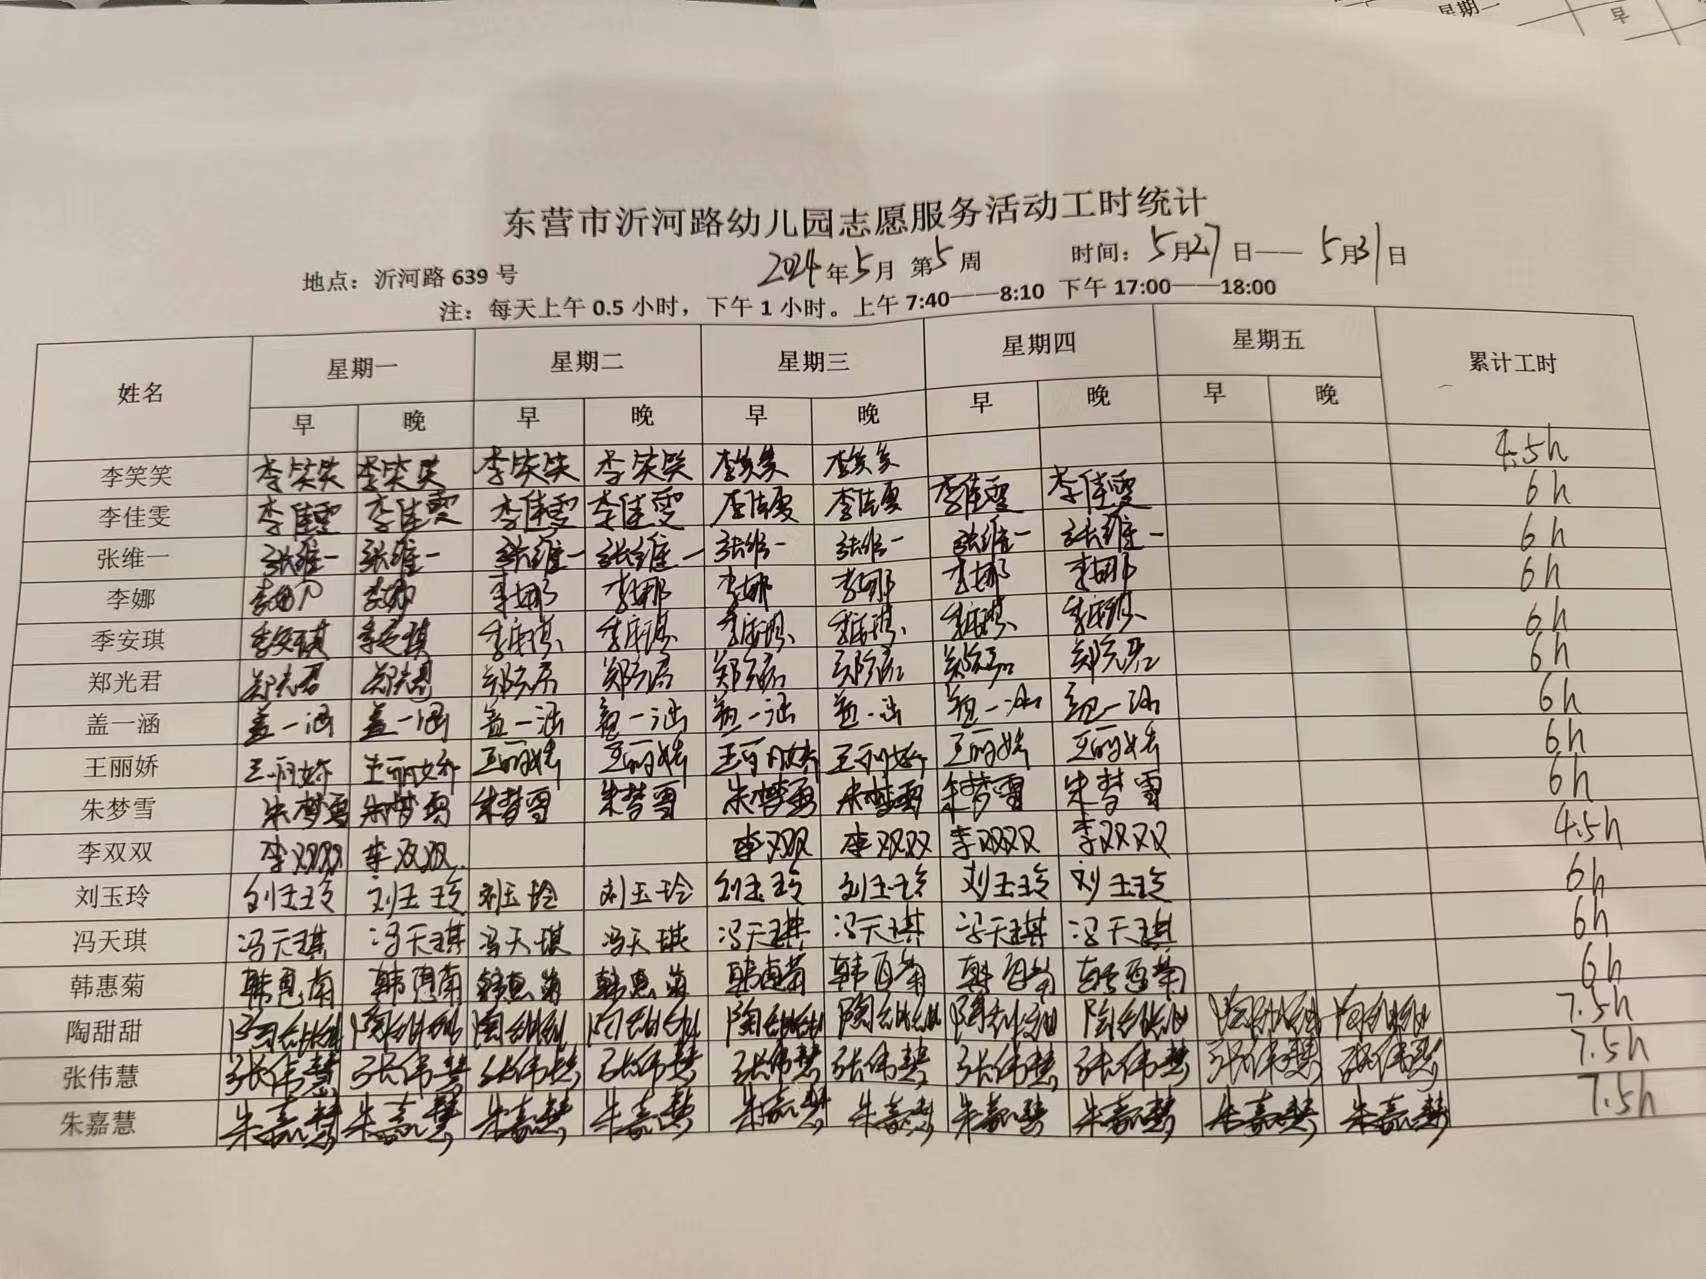 星期一
早
东营市沂河路幼儿园志愿服务活动工时统计
地点：沂河路 639 号 2024 年 5 月 第 5 周 时间：5 月 27 日—— 5 月 31 日
注：每天上午 0.5 小时，下午 1 小时。上午 7:40——8:10 下午 17:00——18:00
姓名 星期一 星期二 星期三 星期四 星期五 累计工时
早 晚 早 晚 早 晚 早 晚 早 晚
李笑笑 李笑笑 李笑笑 李笑笑 李笑笑 李笑笑 李笑笑 4.5h
李佳雯 李佳雯 李佳雯 李佳雯 李佳雯 李佳雯 李佳雯 李佳雯 李佳雯 6h
张维一 张维一 张维一 张维一 张维一 张维一 张维一 张维一 张维一 6h
李娜 李娜 李娜 李娜 李娜 李娜 李娜 李娜 李娜 6h
季安琪 季安琪 季安琪 季安琪 季安琪 季安琪 季安琪 季安琪 季安琪 6h
郑光君 郑光君 郑光君 郑光君 郑光君 郑光君 郑光君 郑光君 郑光君 6h
盖一涵 盖一涵 盖一涵 盖一涵 盖一涵 盖一涵 盖一涵 盖一涵 盖一涵 6h
王丽娇 王丽娇 王丽娇 王丽娇 王丽娇 王丽娇 王丽娇 王丽娇 王丽娇 6h
朱梦雪 朱梦雪 朱梦雪 朱梦雪 朱梦雪 朱梦雪 朱梦雪 朱梦雪 朱梦雪 6h
李双双 李双双 李双双 李双双 李双双 李双双 李双双 4.5h
刘玉玲 刘玉玲 刘玉玲 刘玉玲 刘玉玲 刘玉玲 刘玉玲 刘玉玲 刘玉玲 6h
冯天琪 冯天琪 冯天琪 冯天琪 冯天琪 冯天琪 冯天琪 冯天琪 冯天琪 6h
韩惠菊 韩惠菊 韩惠菊 韩惠菊 韩惠菊 韩惠菊 韩惠菊 韩惠菊 韩惠菊 6h
陶甜甜 陶甜甜 陶甜甜 陶甜甜 陶甜甜 陶甜甜 陶甜甜 陶甜甜 陶甜甜 陶甜甜 陶甜甜 7.5h
张伟慧 张伟慧 张伟慧 张伟慧 张伟慧 张伟慧 张伟慧 张伟慧 张伟慧 张伟慧 张伟慧 7.5h
朱嘉慧 朱嘉慧 朱嘉慧 朱嘉慧 朱嘉慧 朱嘉慧 朱嘉慧 朱嘉慧 朱嘉慧 朱嘉慧 朱嘉慧 7.5h